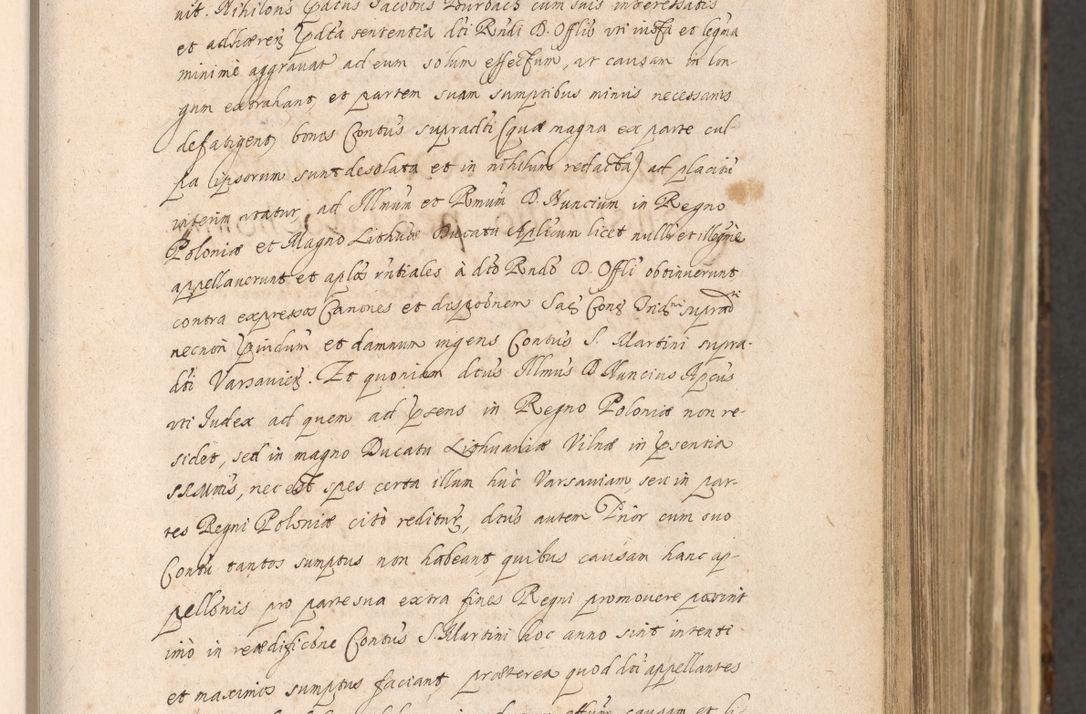 vit. Nihilons pdctus Jacobus Burbach cum suis interessatis
et adhæren pdta sententia dti Rndi D. Offlis vti iusta et legma
minimè aggravat ad eum solum effectum, ut causam in lon-
gum extrahant, et partem suam sumptibus minus necessariis
defatigent, bonis Contus supradti, (quæ magna ex parte cul-
pa ipsorum sunt desolata et in nihilum redacta) ad placitũ
interim utatur, ad Illmum et Rmum D. Nuncium in Regno
Poloniæ et Magno Lithuæ Ducatu Aplicum licet nullr et illegmè
appellaverunt et aplos rntiales à dto Rndo D. Offli obtinuerunt
contra expressos Canones et dispõnem Sac Conc Trid supradti
necnon pjudium et damnum ingens Contus S. Martini supra-
dti Varsavien. Et quoniam dtus Illmus D. Nuncius Apcus
vti Judex ad quem ad psens in Regno Poloniæ non re-
sidet, sed in magno Ducatu Lithuaniæ Vilnæ in psentia
SRMttis, nec est spes certa illum hùc Varsaviam, seu in par-
tes Regni Poloniæ citò rediturg, dtus autem Prior cum suo
Contu tantos sumptus non habeant, quibus causam hanc ap-
pellonis pro parte sua extra fines Regni promovere possint
imò in reædificõne Contus S. Martini hoc anno sint intenti
et maximos sumptus faciant, præterea quod dti appellantes